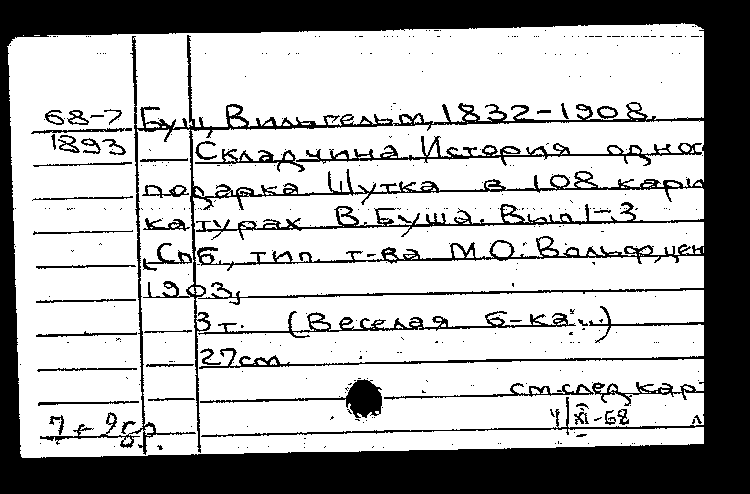 68-7 Буш, Вильгельм, 1832-1908.
1893 Складчина. История одного
подарка. Шутка в 108 карри-
катурах В. Буша. Вып 1-3
[Спб., тип. т-ва М.О. Вольф, цен
1903,
3 т. (Веселая б-ка...)
27cm.
см.след кар
4/XI-68